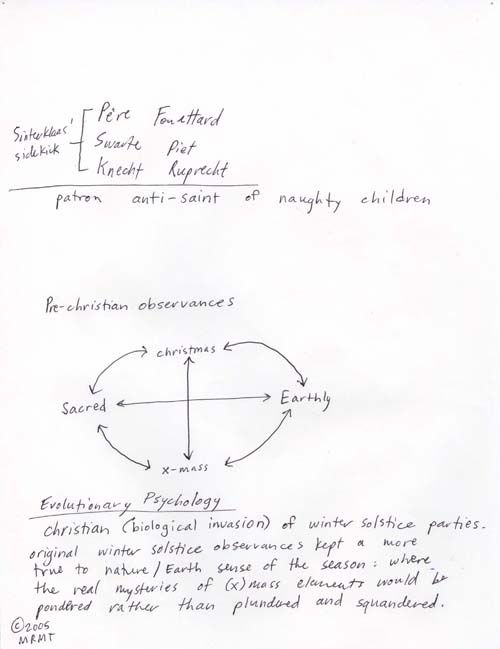 Sinterklaas'
sidekick
Père Fouettard
Swarte Piet
Knecht Ruprecht
patron anti-saint of naughty children
Pre-christian observances
christmas
Sacred
Earthly
x-mass
Evolutionary Psychology
christian (biological invasion) of winter solstice parties.
original winter solstice observances kept a more
true to nature/Earth sense of the season: where
the real mysteries of (x)mass elements would be
pondered rather than plundered and squandered.
©2005
MRMT